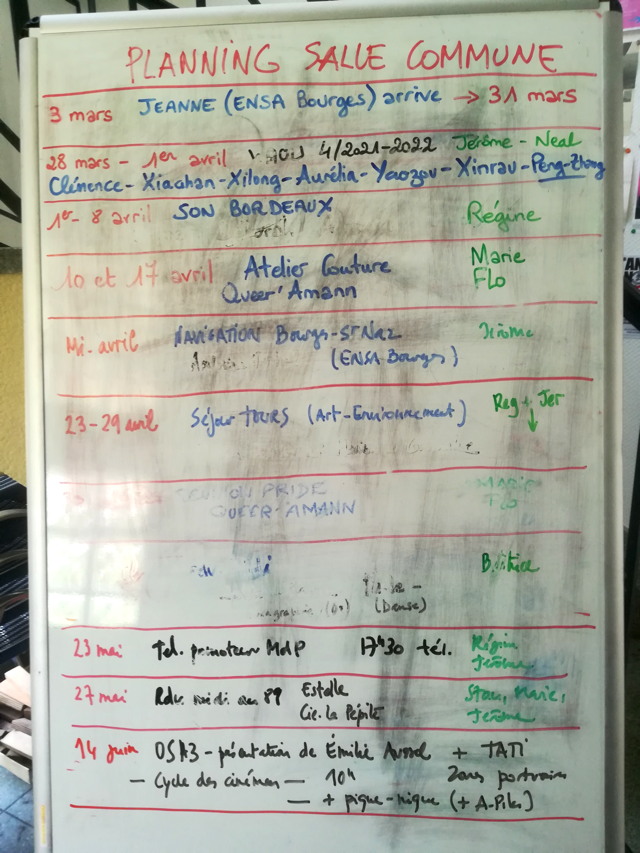 PLANNING SALLE COMMUNE
3 mars JEANNE (ENSA Bourges) arrive → 31 mars
28 mars - 1er avril 4/2021-2022 Jérôme - Neal
Clémence - Xiaohan - Xilong - Aurélia - Yaozou - Xinrau - Peng-Zhang
1er - 8 avril SON BORDEAUX Régine
10 et 17 avril Atelier Couture Marie
Queer'Amann Flo
Mi-avril NAVIGATION Bourgs-St Naz Jérôme
(ENSA-Bourges)
23-29 avril Séjour TOURS (Art-Environnement) Reg + Jer ↓
PRIDE Marie
QUEER-AMANN Flo
Béatrice
(Danse)
23 mai Tel. MdP 17h30 tél. Régine
Jérôme
27 mai Rdv midi au 89 Estelle Stan, Marie,
Cie. la Pépite Jérôme
14 juin OSA3 - présentation de Émilie + TATI
- Cycle des cinémas - 10h
- + pique-nique (+ A-Piles)